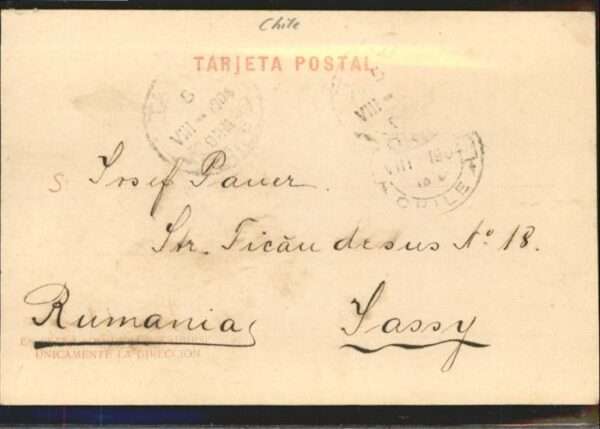 Chile
TARJETA POSTAL
VIII 1904
VIII
VIII 190
CHILE
S
Josef Pauer.
Str. Ticău de sus No. 18.
Rumania,
Jassy
UNICAMENTE LA DIRECCION